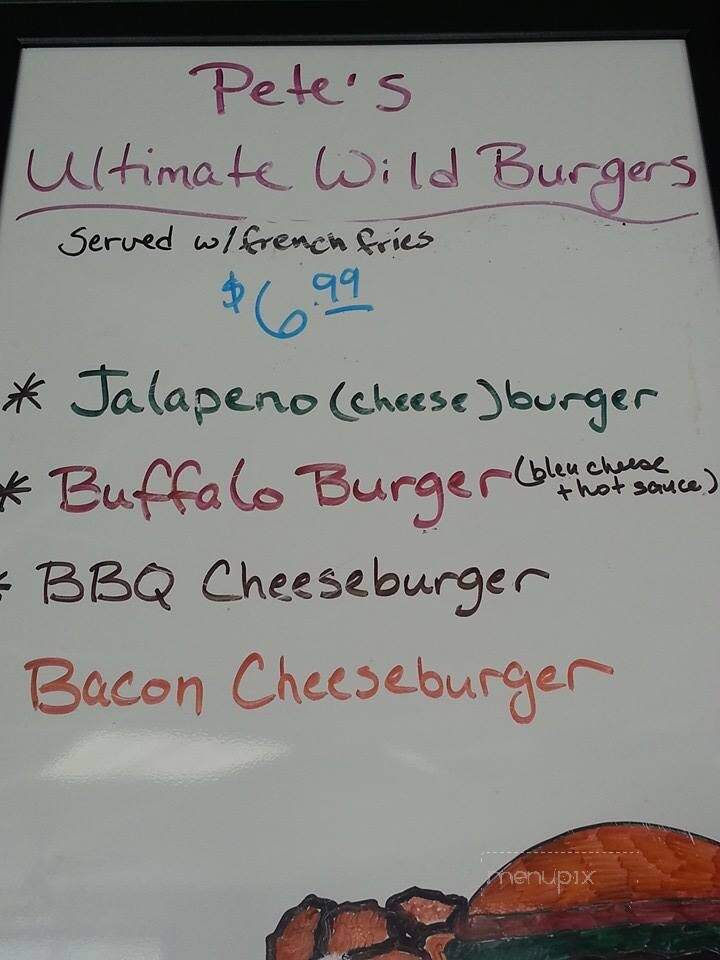 Pete's
Ultimate Wild Burgers
Served w/ french fries
$6.99
* Jalapeno (cheese) burger
* Buffalo Burger (bleu cheese + hot sauce)
* BBQ Cheeseburger
Bacon Cheeseburger
menupix